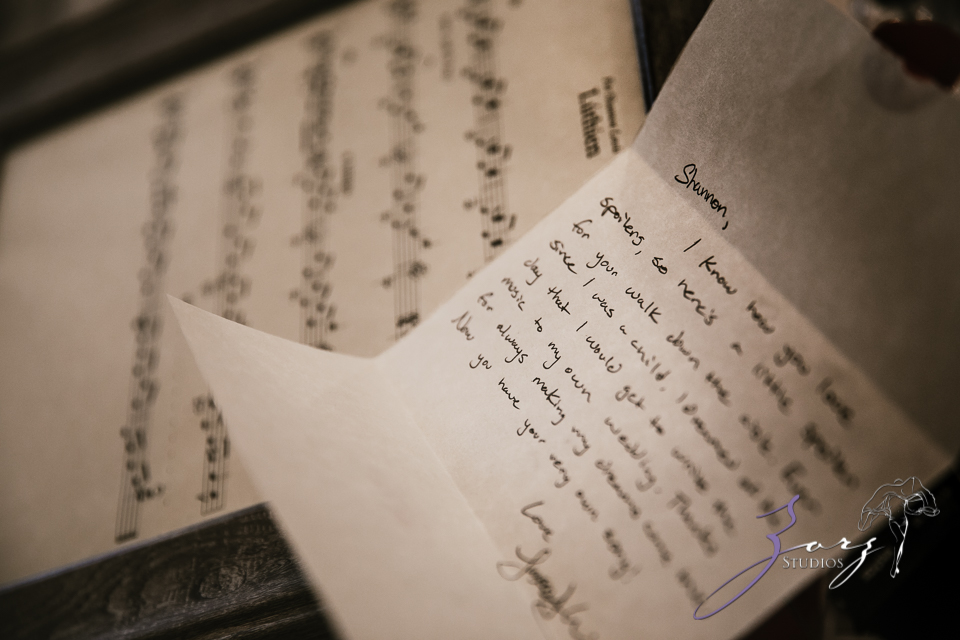 For Shannon
Lúthien
Shannon,
I know how you love
spoilers, so here's a little spoiler
for your walk down the aisle. Ever
since I was a child, I dreamed of the
day that I would get to write
music to my own wedding. Thanks
for always making my dreams come
Now you have your very own song!
Love
Zorz
STUDIOS